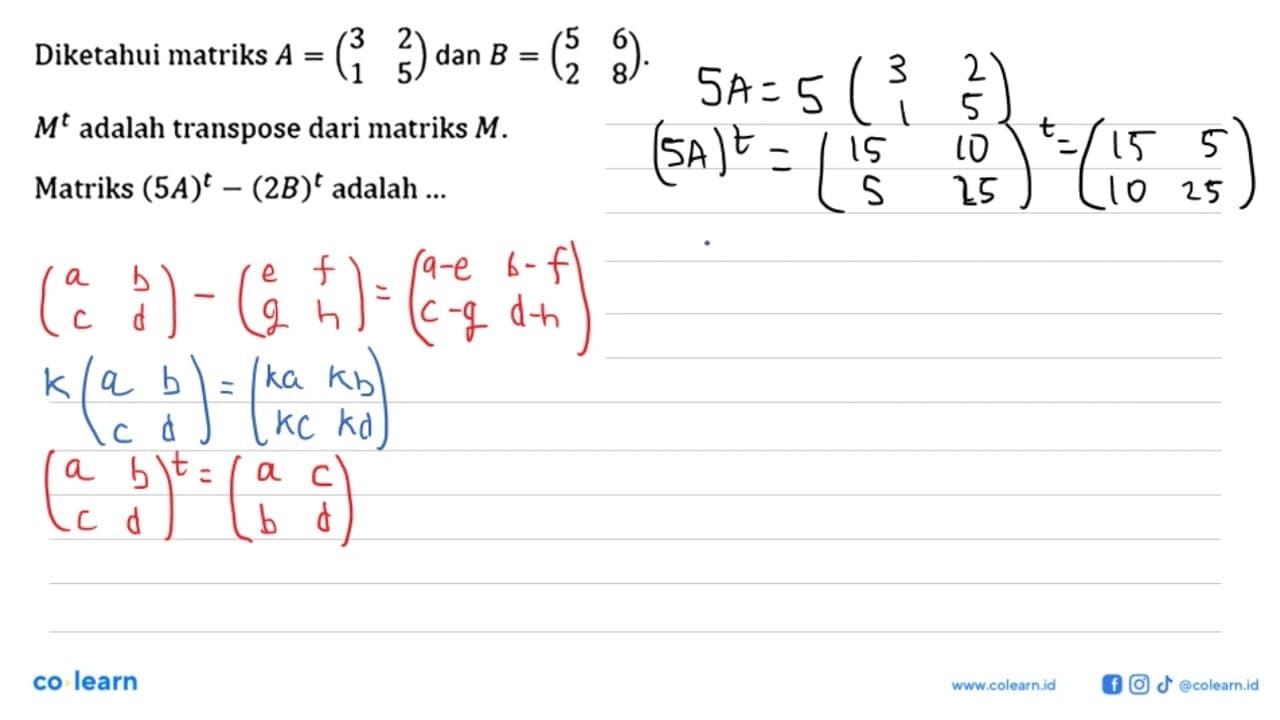 Diketahui matriks A = (3 2 1 5) dan B = (5 6 2 8).
M^t adalah transpose dari matriks M.
Matriks (5A)^t − (2B)^t adalah ...
5A = 5 (3 2 1 5)
(5A)^t = (15 10 5 25)^t = (15 5 10 25)
(a b c d) - (e f g h) = (a-e b-f c-g d-h)
k (a b c d) = (ka kb kc kd)
(a b c d)^t = (a c b d)
co learn
www.colearn.id
@colearn.id